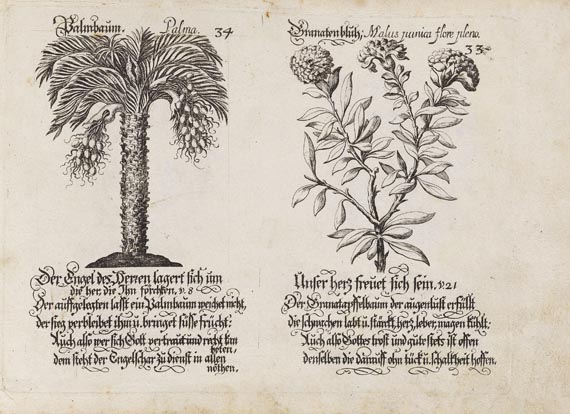 Palmbaum. Palma. 34
Der Engel des Herren lagert sich üm
die her, die Ihn förchten. v. 8
Der auffgelegten lasst ein Palmbaum weichet nicht,
der sieg verbleibet ihm u. bringet süsse frücht:
Auch also wer sich Gott vertraut und recht kan
beten,
dem steht der Engelschar zu dienst in allen
nöthen.
Granatenblüh; Malus punica flore pleno.
33
Unser herz freuet sich sein. v. 21
Der Granatapffelbaum der augenlust erfüllt
die schwachen labt u. stärckt, herz, leber, magen kühlt:
Auch also Gottes trost und güte stets ist offen
denselben die auff ohn tück u. schalkheit hoffen.